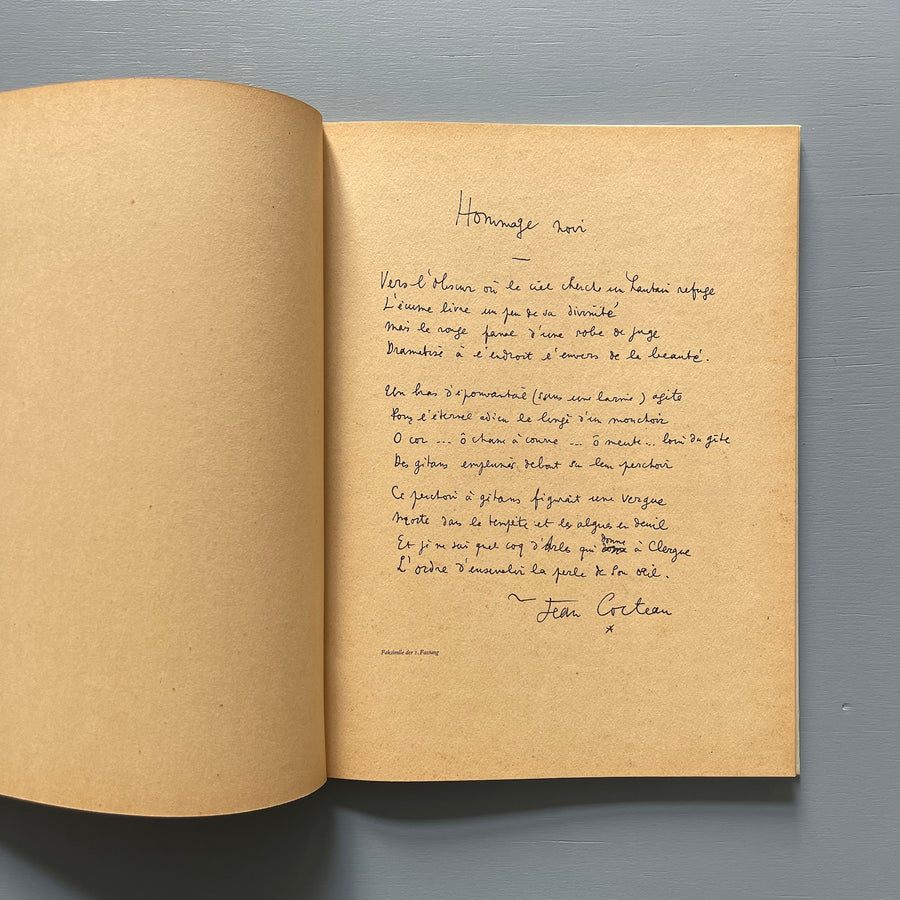 Hommage noir
Vers l'Obscur où le ciel cherche un lointain refuge
L'écume livre un peu de sa divinité
Mais le rouge fane d'une robe de juge
Dramatise à l'endroit l'envers de la beauté.
Un bras d'épouvantail (sans une larme) agite
Pour l'éternel adieu le linge d'un mouchoir
O cor ... ô chasse à courre ... ô meute... loin du gîte
Des gitans emplumés debout sur leur perchoir
Ce perchoir à gitans figurait une vergue
Morte dans la tempête et les algues en deuil
Et je ne sais quel coq d'Arles qui donne à Clergue
L'ordre d'ensevelir la perle de son œil.
Jean Cocteau
Faksimile der 2. Fassung